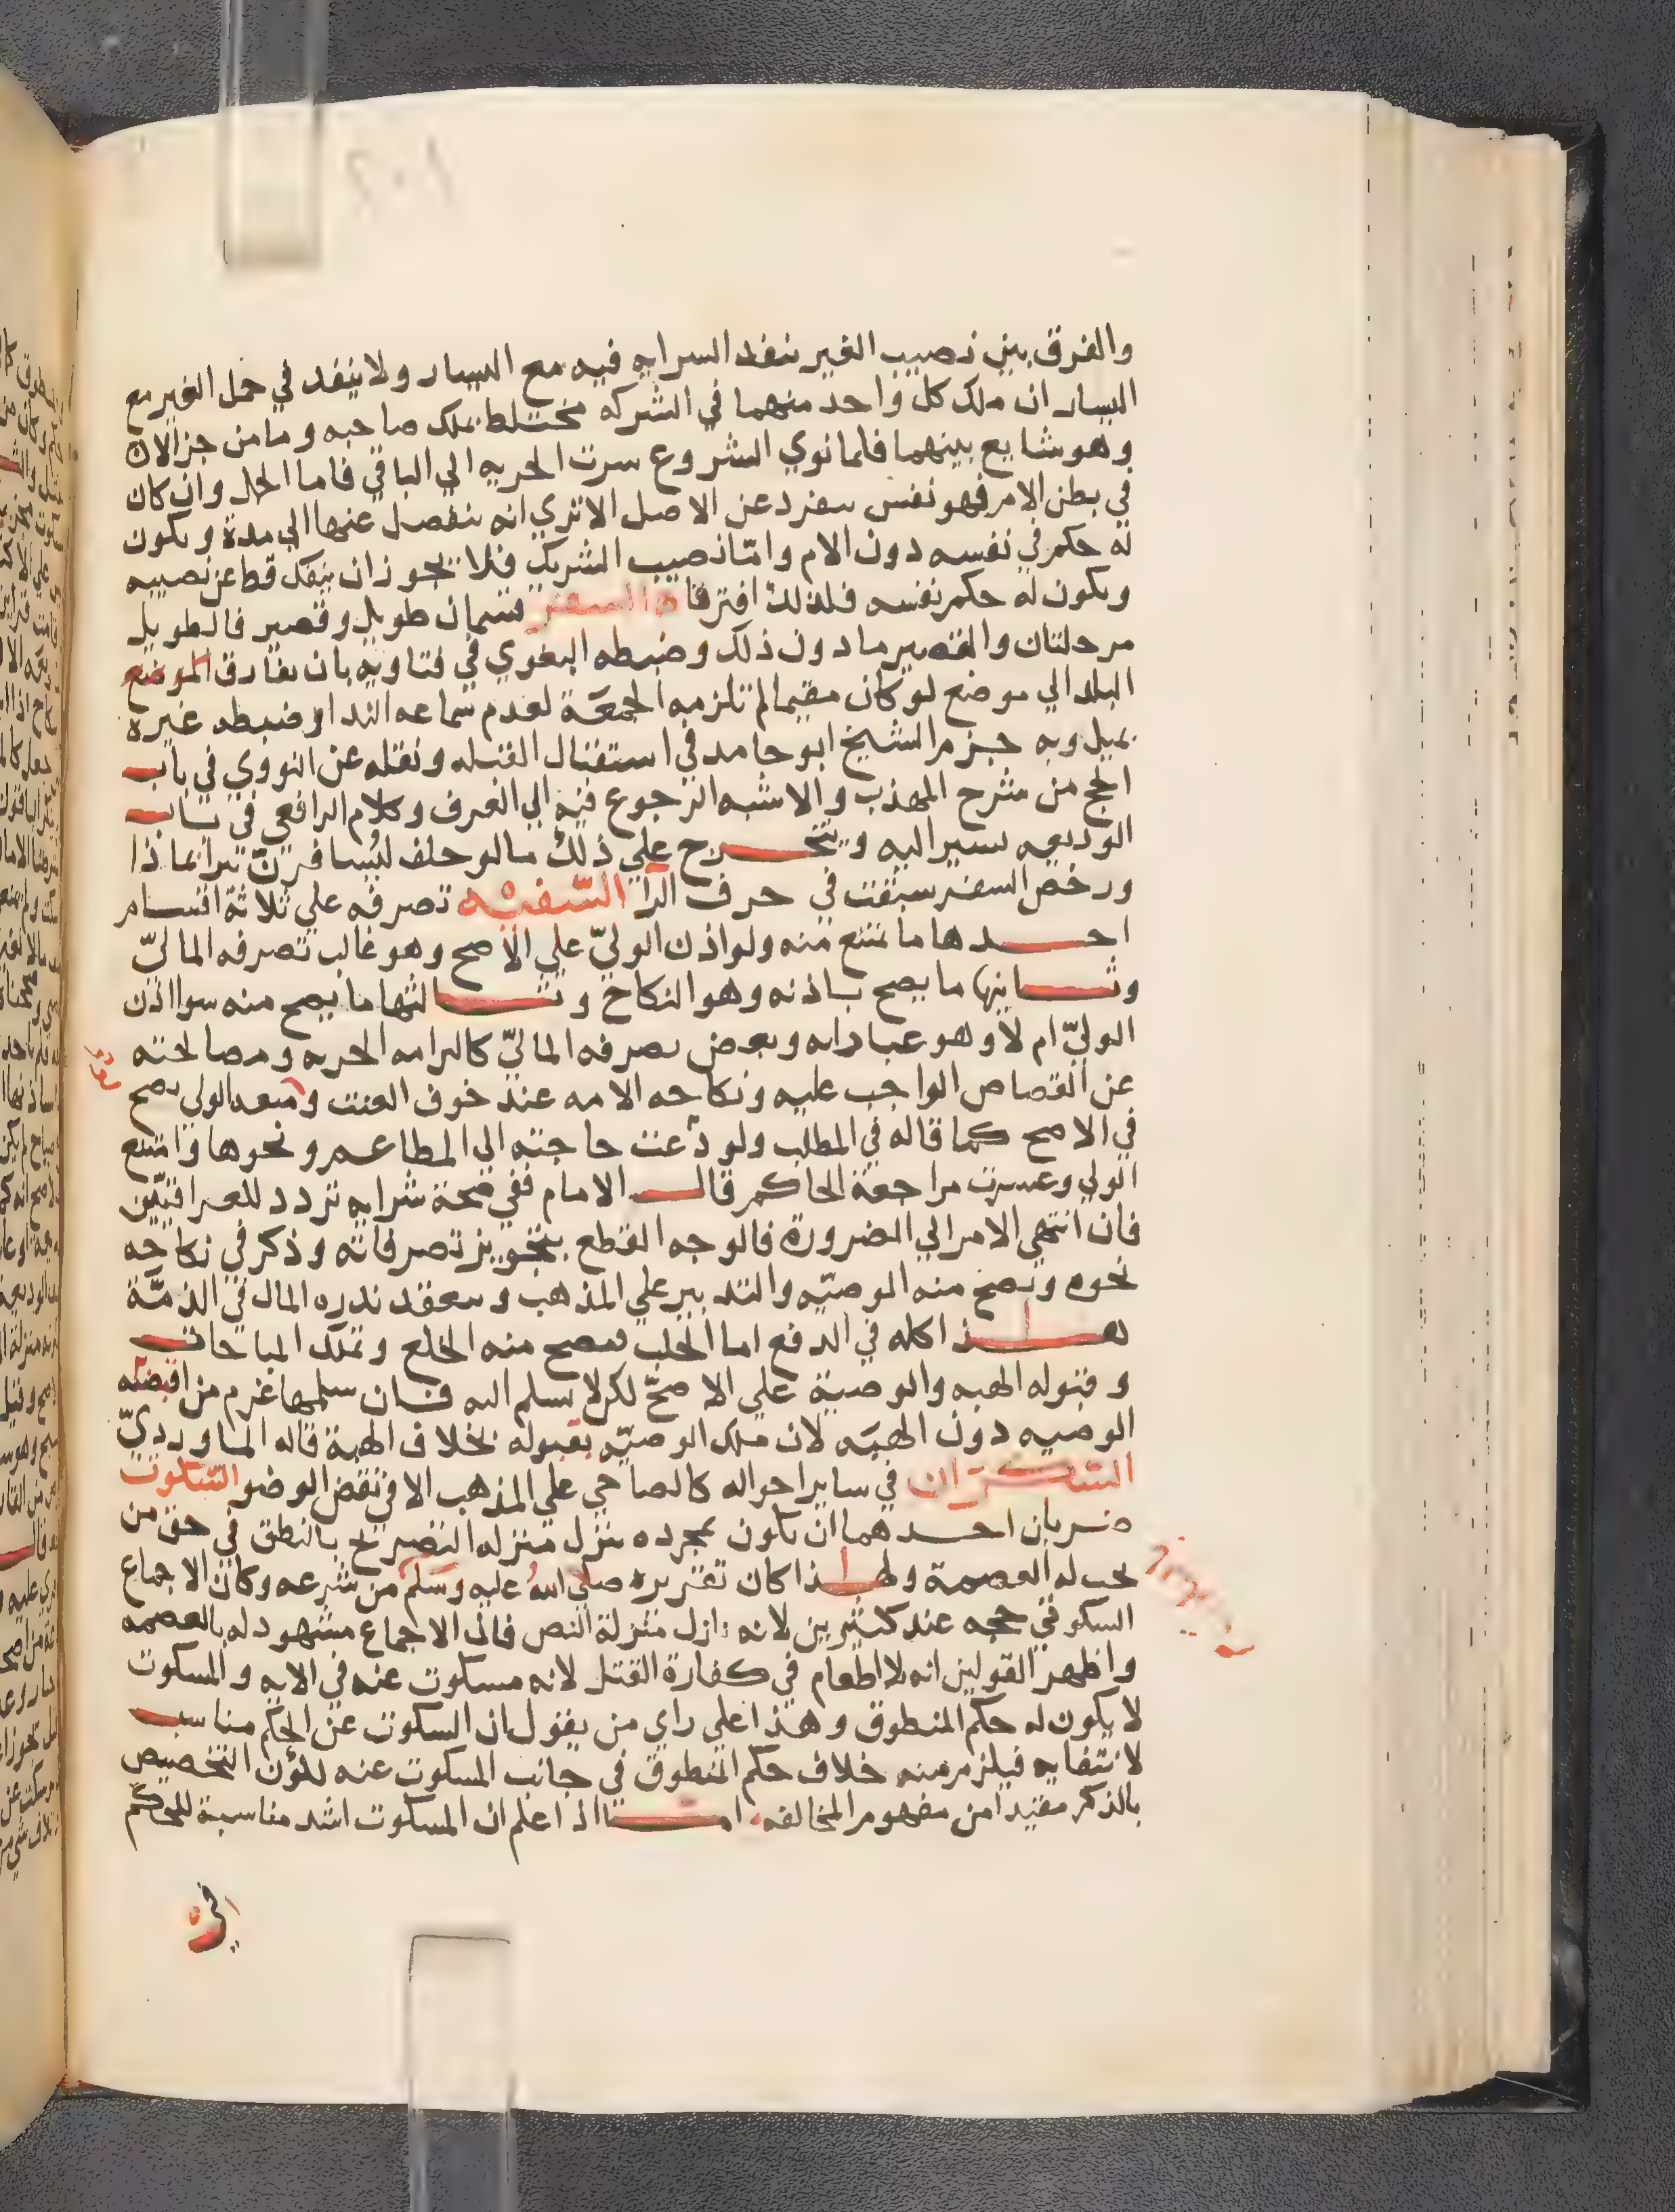 والفرق بين نصيب الغير ينفد السرايه فيه مع اليسار ولا ينفد في حمل الغير مع
اليسار ان ملك كل واحد منهما في الشركه مختلط بملك صاحبه وما من جز الا ان
وهو شايع بينهما فلما نوي الشروع سرت الحريه الي الباقي فاما الحمل وان كان
في بطن الام فهو نفس منفرد عن الاصل الا تري انه ينفصل عنها الي مدة ويكون
له حكم في نفسه دون الام وامّا نصيب الشريك فلا يجوز ان ينفك قط عن نصيبه
ويكون له حكم نفسه فلذلك افترقا السفر قسمان طويل وقصير فالطويل
مرحلتان والقصير ما دون ذلك وضبطه البغوي في فتاويه بان يفارق الموضع
البلد الي موضع لو كان مقيما لم تلزمه الجمعَة لعدم سماعه الندا وضبطه غيره
بميل وبه جزم الشيخ ابو حامد في استقبال القبله ونقله عن النووي في باب
الحج من شرح المهذب والاشبه الرجوع فيه الي العرف وكلام الرافعي في باب
الوديعه يسير اليه ويتخرج علي ذلك ما لو حلف ليُسافرنّ يبرا بماذا
ورخص السفر سبقت في حرف الرا السّفيْه تصرفه علي ثلاثة اقسام
احدها ما يمتنع منه ولو اذن الوليّ علي الاصح وهو غالب تصرفه الماليّ
وثانيها ما يصح باذنه وهو النكاح وثالثها ما يصح منه سوا اذن
الوليّ ام لا وهو عباداته وبعض تصرفه الماليّ كالتزامه الجزيه ومصالحته
عن القصاص الواجب عليه ونكاحه الامه عند خوف العنت ومنعه الولي يصح
في الاصح كما قاله في المطلب ولو دعت حاجته الي المطاعم ونحوها وامتنع
الولي وعسرت مراجعة الحاكم قال الامام ففي صحة شرايه تردد للعراقيّين
فان انتهي الامر الي الضرورة فالوجه القطع بتجويز تصرفاته وذكر في نكاحه
نحوه ويصح منه الوصيّه والتدبير علي المذهب وينعقد نذره المال في الذمّة
هذا كله في الدفع اما الجلب فيصح منه الخلع وتملك المباحات
وقبوله الهبه والوصية علي الاصحّ لكن لا يسلم اليه فان سلمها غرم من اقبضه
الوصيه دون الهبَه لان ملك الوصيّه بقبوله بخلاف الهبة قاله الماورديّ
السّكران في ساير احواله كالصاحي علي المذهب الا في نقض الوضو السّكوت
ضربان احدهما ان يكون بمجرده ينزل منزله التصريح بالنطق في حق من
يجب له العصمة ولهذا كان تقريره صلي الله عليه وسلم من شرعه وكان الاجماع
السكوتي حجه عند كثيرين لانه نازل منزلة النص فان الاجماع مشهود له بالعصمه
واظهر القولين انه لا اطعام في كفارة القتل لانه مسكوت عنه في الايه والمسكوت
لا يكون له حكم المنطوق وهذا علي راي من يقول ان السكوت عن الحكم مناسب
لانتفايه فيلزم منه خلاف حكم المنطوق في جانب المسكوت عنه لكون التخصيص
بالذكر مفيدا من مفهوم المخالفه اما اذا علم ان المسكوت اشد مناسبة للحكم
في